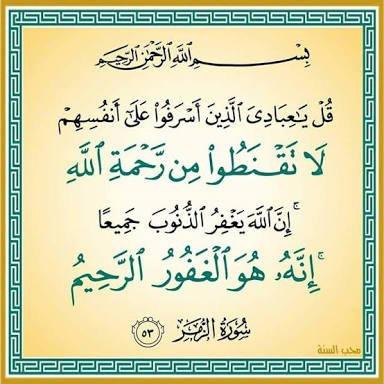 بِسْمِ اللَّهِ الرَّحْمَٰنِ الرَّحِيمِ
قُلْ يَٰعِبَادِىَ ٱلَّذِينَ أَسْرَفُوا۟ عَلَىٰٓ أَنفُسِهِمْ
لَا تَقْنَطُوا۟ مِن رَّحْمَةِ ٱللَّهِ
ۚ إِنَّ ٱللَّهَ يَغْفِرُ ٱلذُّنُوبَ جَمِيعًا
ۚ إِنَّهُۥ هُوَ ٱلْغَفُورُ ٱلرَّحِيمُ
سُورَةُ الزُّمَر ٥٣
محب السنة